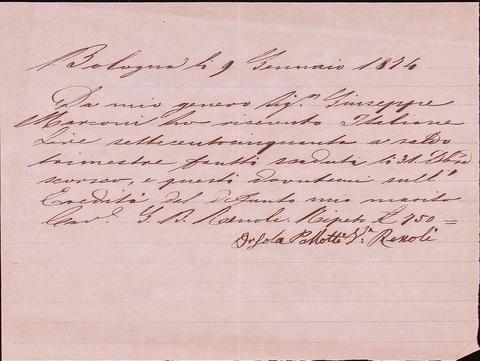 Bologna li 9 Gennaio 1874
Da mio genero Sig.r Giuseppe
Marconi ho ricevuto Italiane
Lire settecentocinquanta a saldo
trimestre frutti scaduti li 31. Dbre
scorso, e questi dovutemi sull'
Eredità del defunto mio marito
Cav.e G. B. Renoli. Ripeto £ 750 =
Orsola Pallotti V.a Renoli